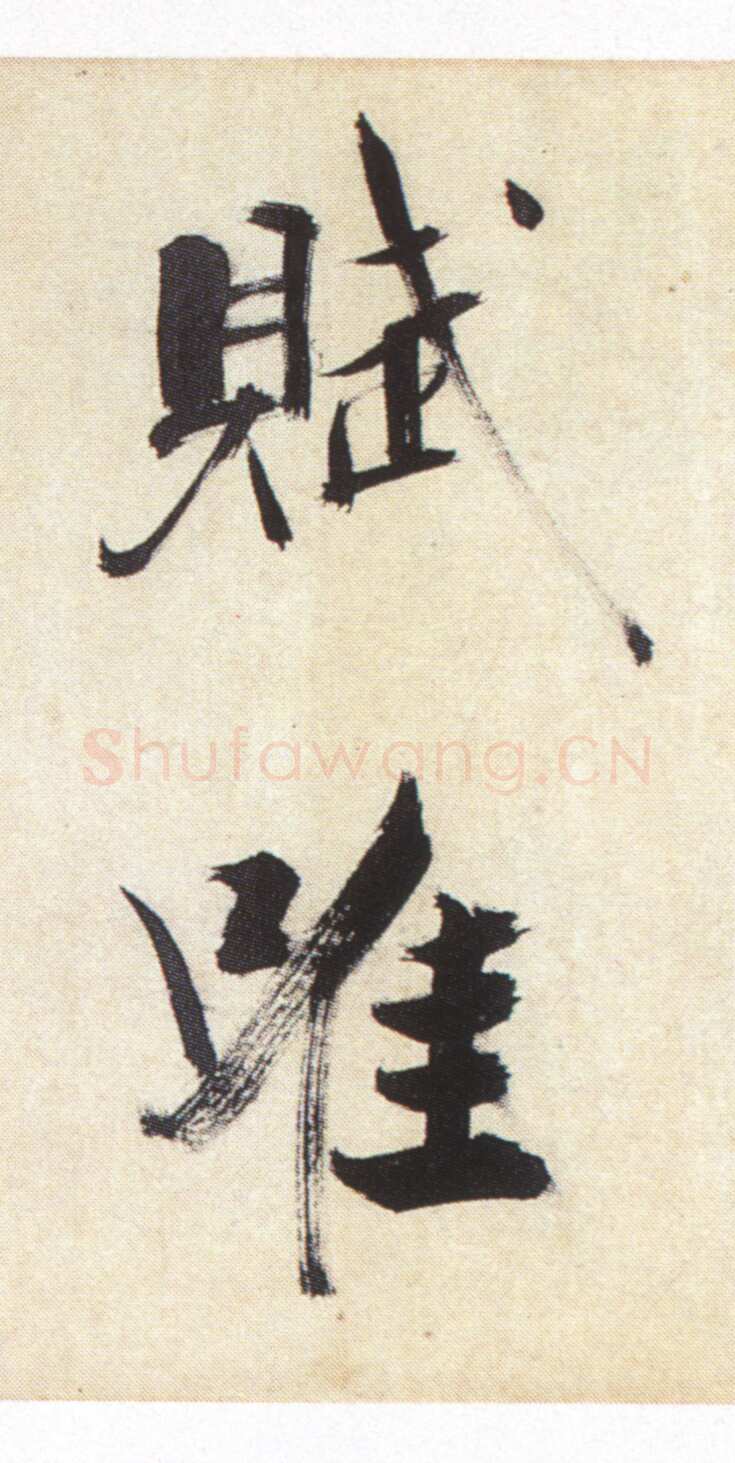 賦
唯
Shufawang.CN